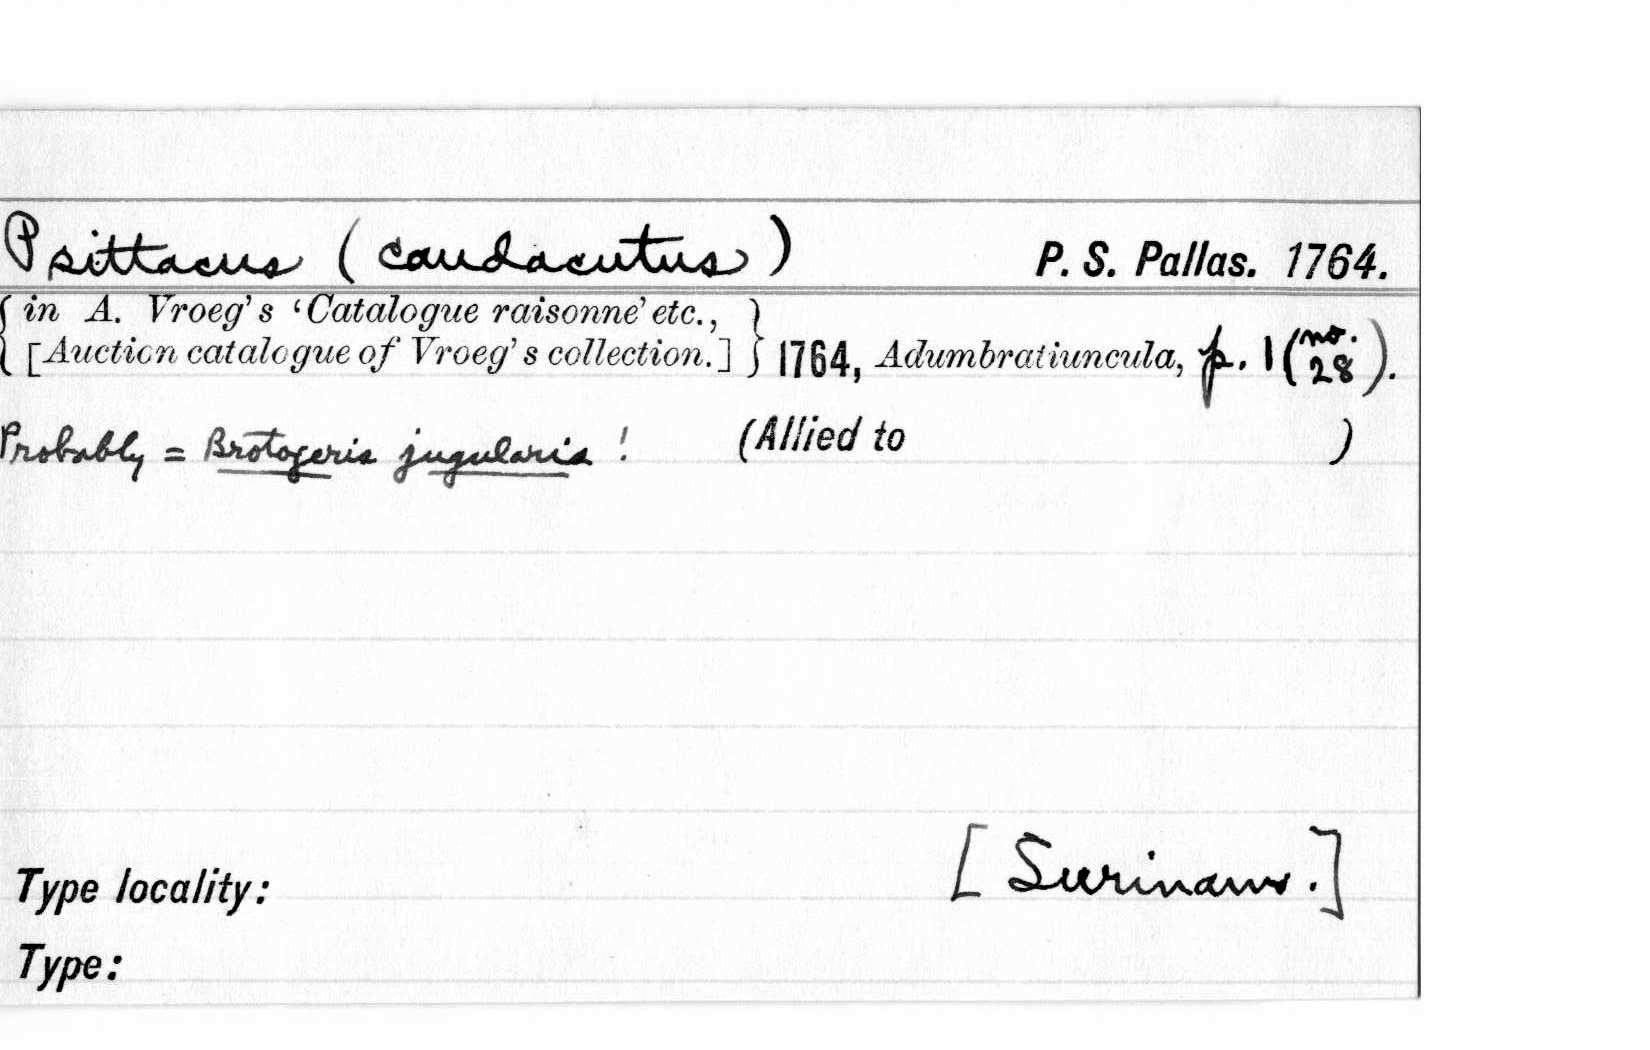 Psittacus (caudacutus) P. S. Pallas. 1764.
{ in A. Vroeg's 'Catalogue raisonne' etc., }
{ [Auction catalogue of Vroeg's collection.] } 1764, Adumbratiuncula, p. 1 (no. 28).
Probably = Brotogeris jugularis! (Allied to )
Type locality: [Surinam.]
Type: